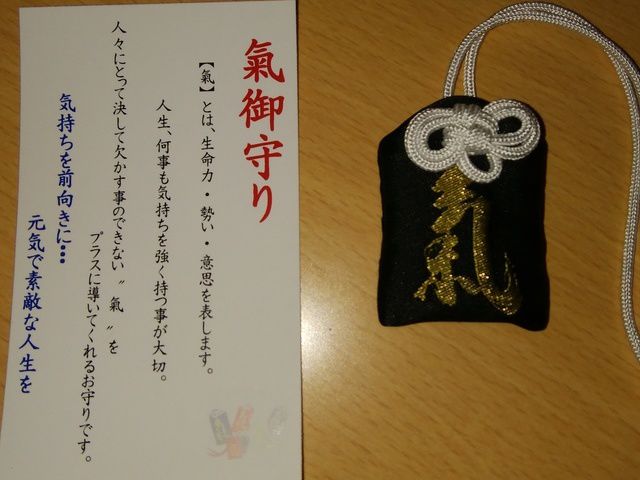 氣御守り
【氣】とは、生命力・勢い・意思を表します。
人生、何事も気持ちを強く持つ事が大切。
人々にとって決して欠かす事のできない〝氣〟を
プラスに導いてくれるお守りです。
気持ちを前向きに…
元気で素敵な人生を
氣